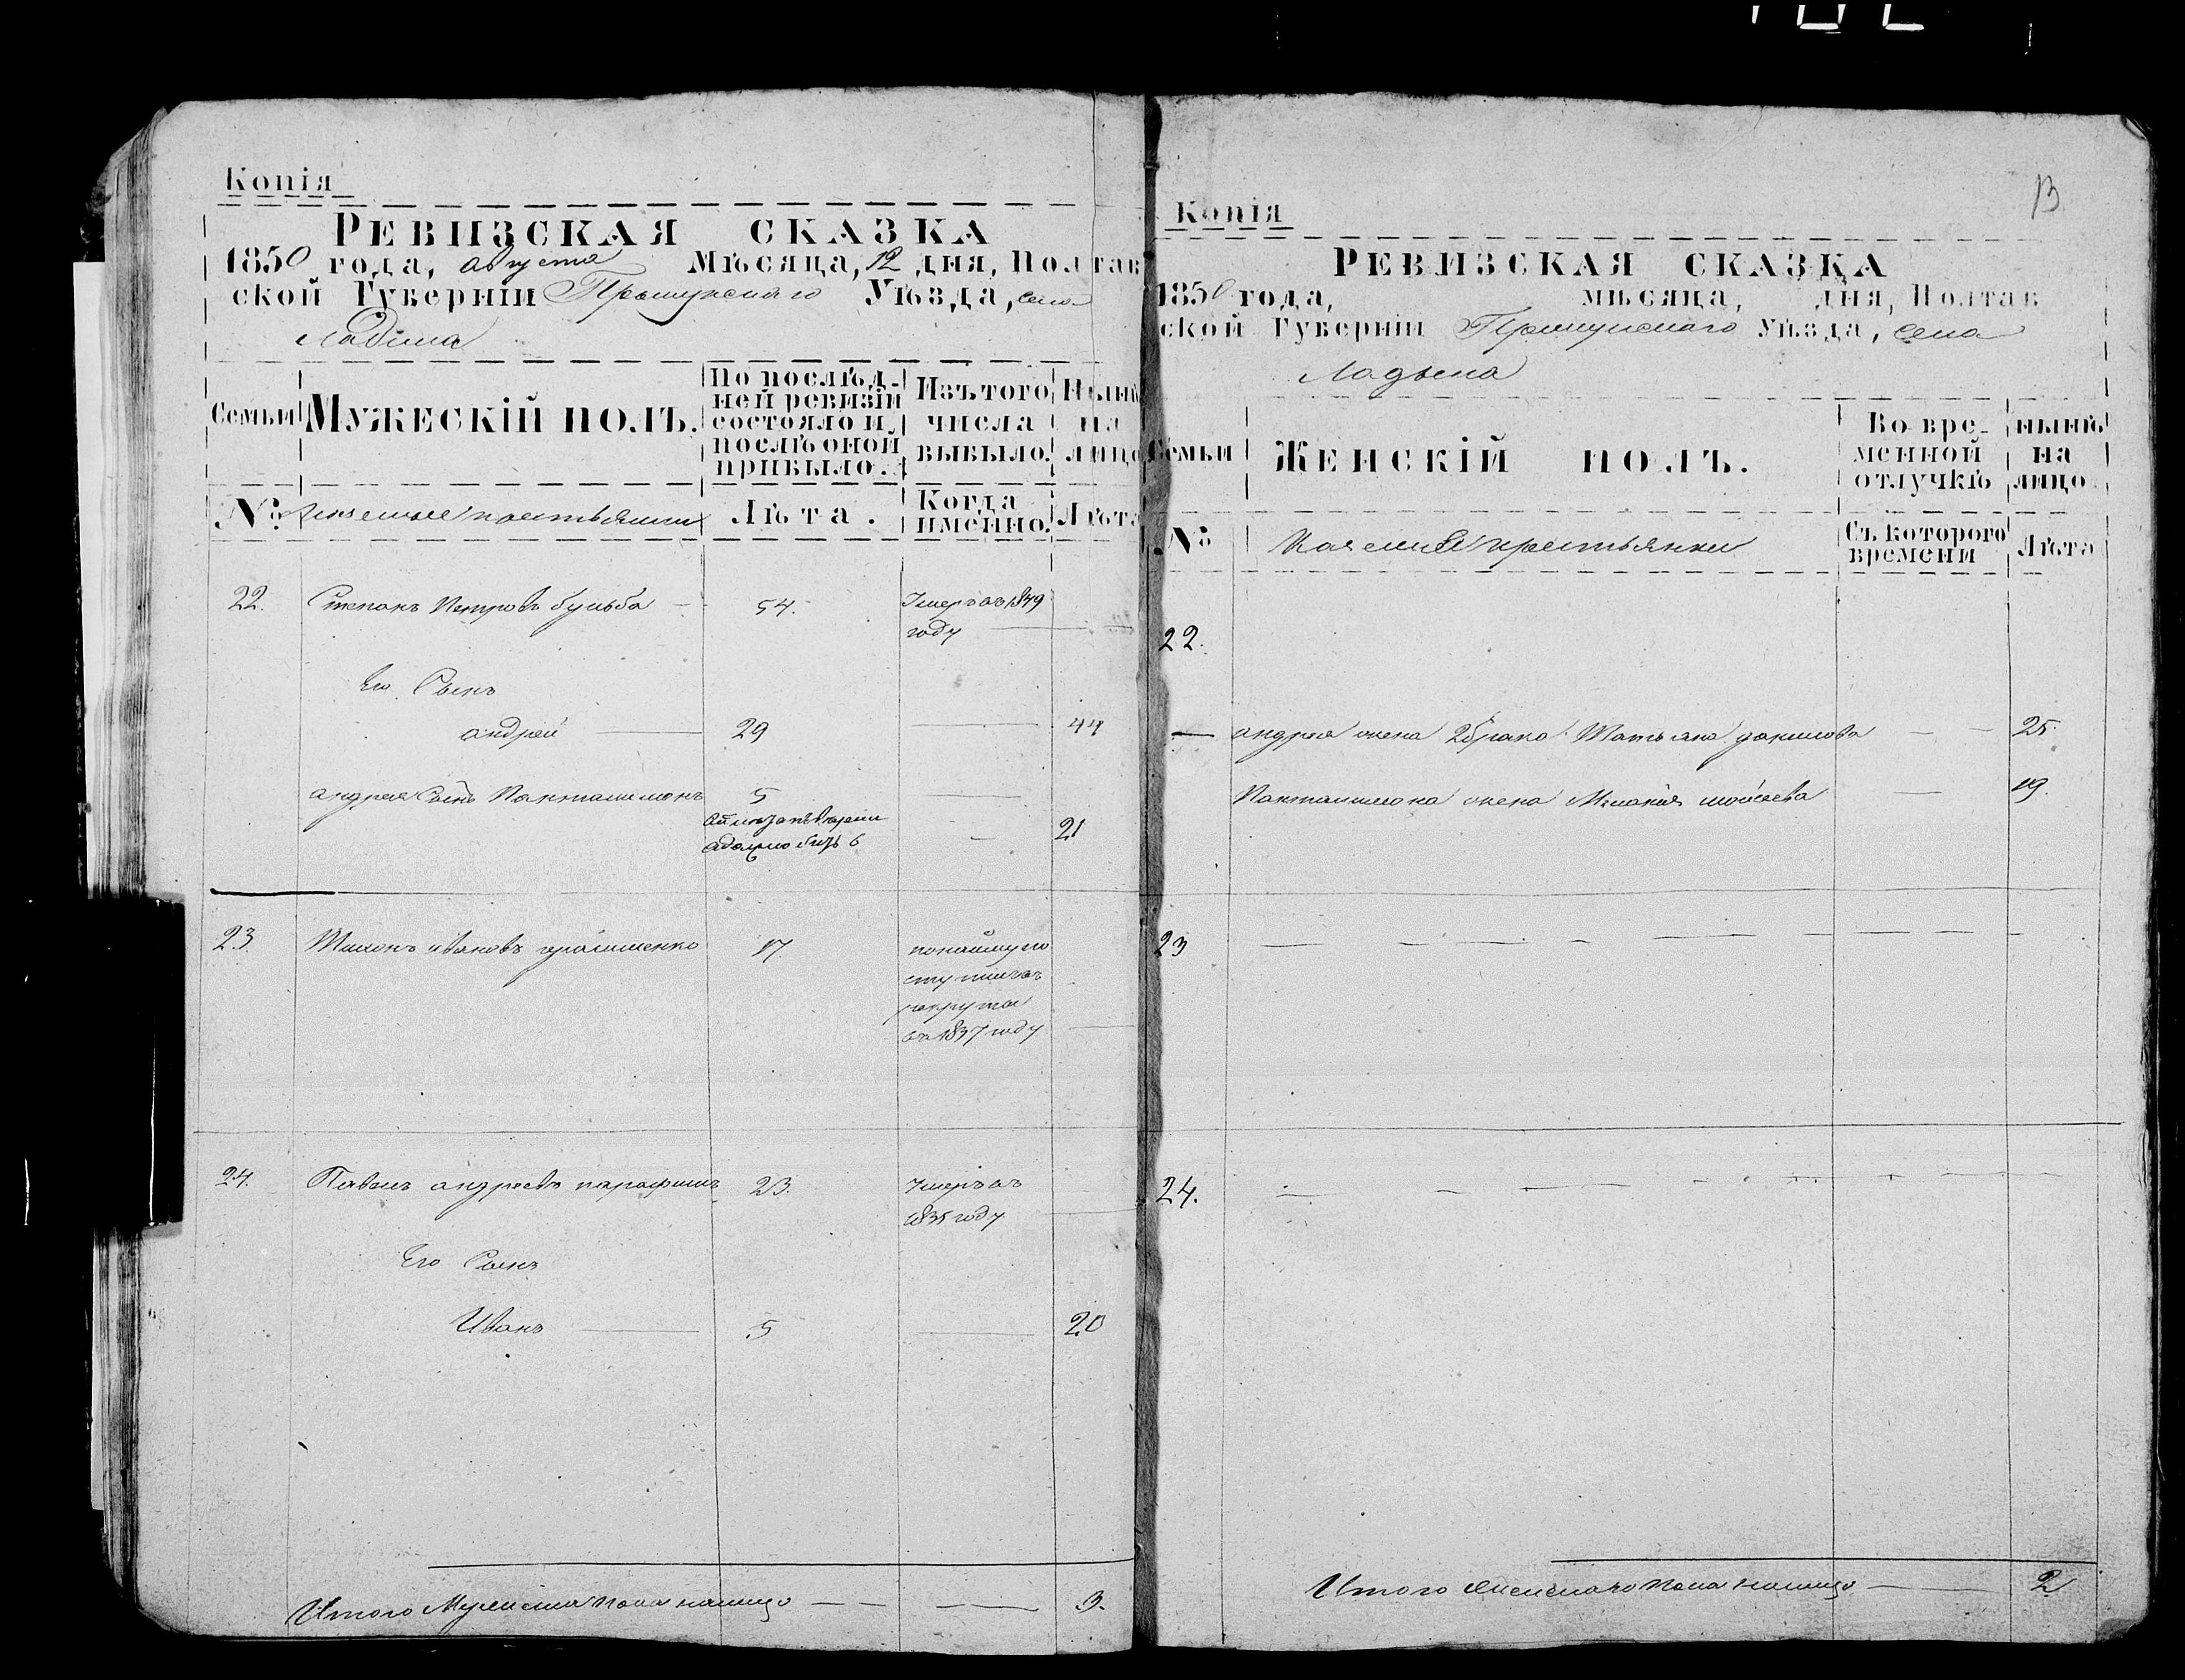 Копія
РЕВИЗСКАЯ СКАЗКА
1850 года, августа Мѣсяца, 12 дня, Полтав
ской Губерніи Прилуцкаго Уѣзда, села
Ладина
Семьи
МУЖЕСКІЙ ПОЛЪ.
По послѣд-
ней ревизіи
состояло и
послѣ оной
прибыло.
Изъ того
числа
выбыло.
Нынѣ
на
лицо
№
Лѣта.
Когда
именно.
Лѣта
22. Степанъ Петровъ бульба 54. Умеръ въ 1849
году
Его Сынъ
андрей 29 44
андрея Сынъ Пантелимонъ 5
21
23. Тихонъ ивановъ 17. по найму по
ступилъ въ
рекруты
въ 1837 году
24. Павелъ андреевъ 23. Умеръ въ
1835 году
Его Сынъ
Иванъ 5 20
Итого Мужеска пола налицо 3.
13
Копія
РЕВИЗСКАЯ СКАЗКА
1850 года, мѣсяца, дня, Полтав
ской Губерніи Прилуцкаго Уѣзда, села
Ладына
Семьи
ЖЕНСКІЙ ПОЛЪ.
Во вре-
менной
отлучкѣ
нынѣ
на
лицо
№
крестьянки
Съ котораго
времени
Лѣта
22.
андрея жена 2 брака Татьяна данилова 25.
Пантелимона жена Меланія моисеева 19.
23
24.
Итого женскаго пола налицо 2